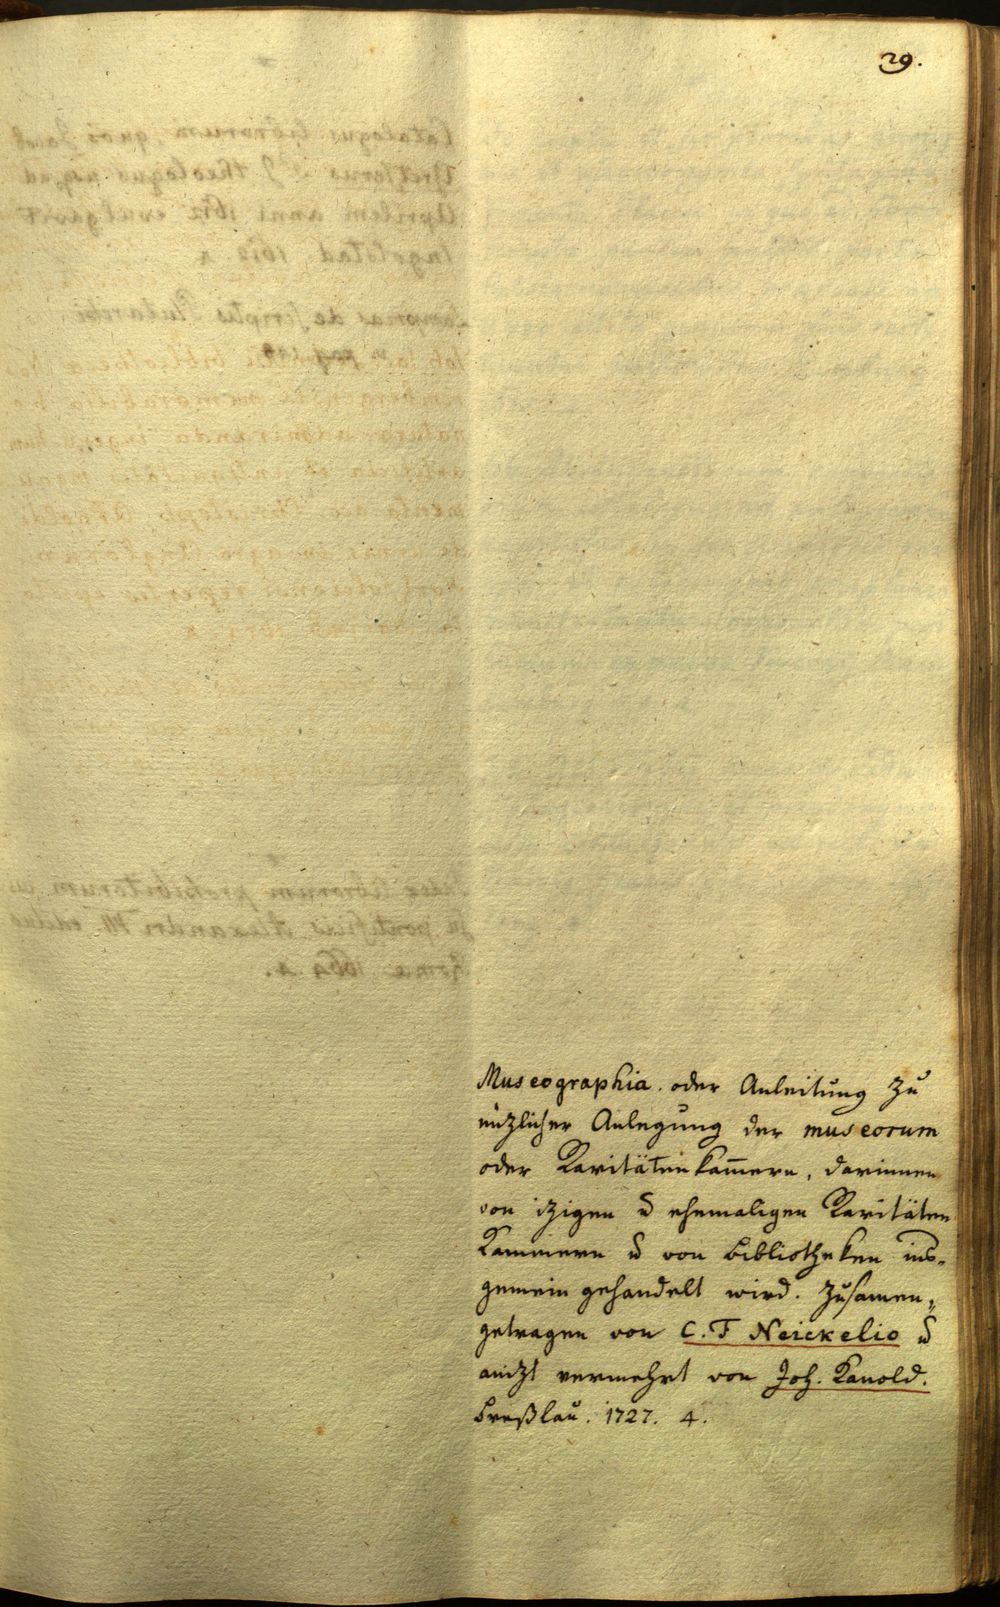 29.
Museographia. oder Anleitung zu
nüzlicher Anlegung der museorum
oder Raritätenkam̄ern, darinnen
von izigen u ehemaligen Raritäten
Kammern u von Bibliotheken ins-
gemein gehandelt wird. Zusamen-
getragen von C. F Neickelio u
anizt vermehrt von Joh. Kanold.
Breßlau. 1727. 4.